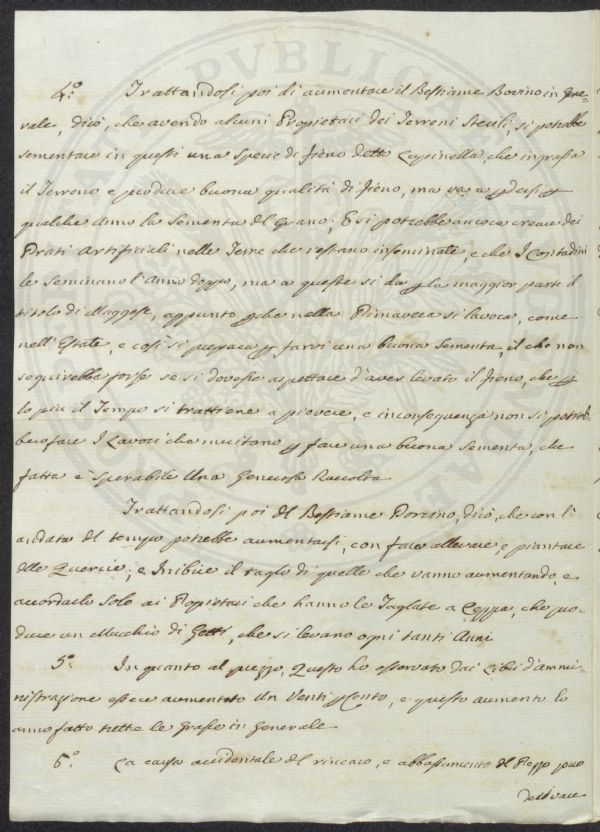 4.° Trattandosi poi di aumentare il Bestiame Bovino in Gene-
rale, dico, che avendo alcuni Propietarj dei Terreni Sterili, si potrebbe
sementare in questi una specie di fieno detto Lupinella, che ingrassa
il Terreno e produce buona qualità di fieno, ma va a perdersi per
qualche Anno la Sementa del Grano; E si potrebbe ancora creare dei
Prati Artificiali nelle Terre che restano inseminate, e che I Contadini
le seminano l'Anno doppo, ma a queste si da per la maggior parte il
titolo di Maggese, appunto perche nella Primavera si lavora, come
nell'Estate, e così si prepara per farvi una buona Sementa, il che non
seguirebbe forse se si dovesse aspettare d'aver levato il fieno, che per
lo più il Tempo si trattiene a piovere, e in conseguenza non si potreb-
bero fare I Lavori che meritano per fare una buona sementa, che
fatta è sperabile Una Generosa Raccolta.
Trattandosi poi del Bestiame Porcino, dico, che con l'
andare del tempo potrebbe aumentarsi, con fare allevare, e piantare
delle Quercie; e Inibire il taglo di quelle che vanno aumentando, e
accordarlo solo ai Propietarj che hanno le Taglate a Ceppe, che pro-
duce un Mucchio di Getti, che si levano ogni tanti Anni.
5.° In quanto al prezzo, Questo ho osservato dai Libri d'ammi-
nistrazione essere aumentato Un Venti per Cento, e questo aumento lo
anno fatto tutte le Grasce in Generale.
6.° La causa accidentale del rincaro, e abbassimento del Prezzo puo
derivare
PVBLICA